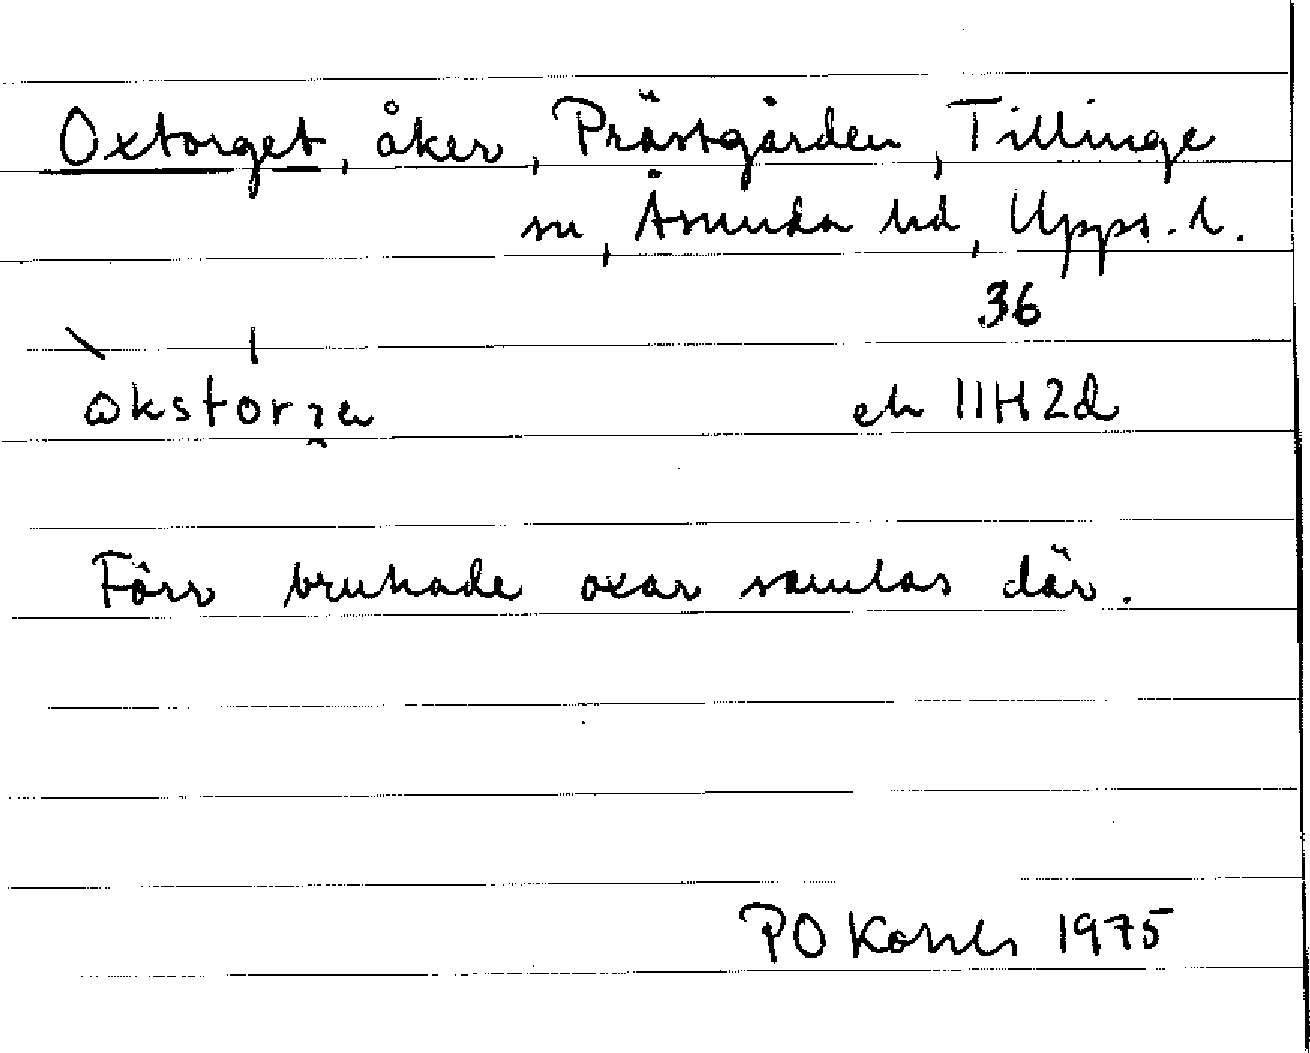 Oxtorget, åker, Prästgården, Tillinge
sn, Åsunda hd, Upps. l.
36
ek 11H2d
Förr brukade oxar samlas där.
PO 1975